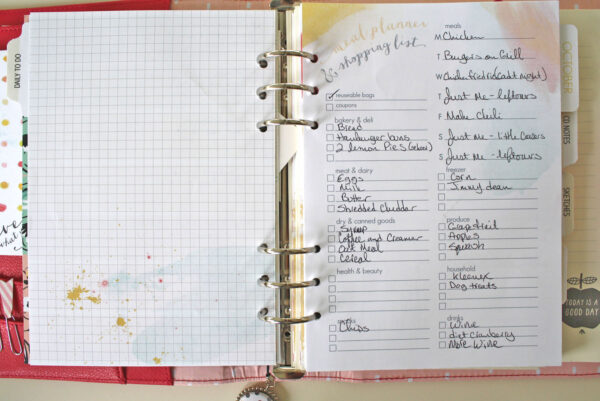 DAILY TO DO
meal planner
& shopping list
reuseable bags
coupons
bakery & deli
Bread
Hamburger buns
2 Lemon Pies
meat & dairy
Eggs
Milk
Butter
Shredded Cheddar
dry & canned goods
Syrup
Coffee and Creamer
Oat Meal
Cereal
health & beauty
Chips
meals
M Chicken
T Burgers on Grill
W
T Just Me - leftovers
F Make Chili
S Just Me - little Ceasers
S Just Me - leftovers
freezer
Corn
Jimmy dean
produce
Grapefruit
Apples
Squash
household
Kleenex
Dog treats
drinks
Wine
diet Cranberry
More Wine
OCTOBER
CO. NOTES
SKETCHES
TODAY IS A
GOOD DAY
what